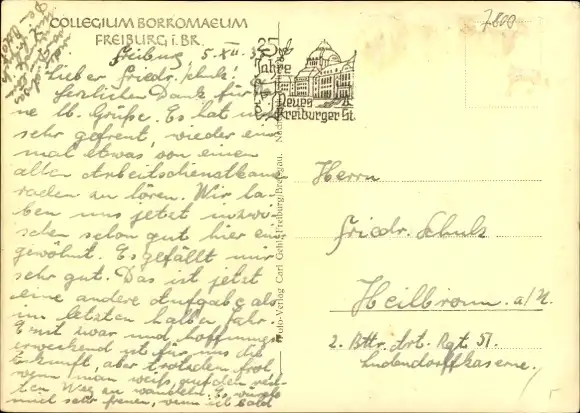 COLLEGIUM BORROMAEUM
FREIBURG i. BR.
Freiburg, 5.XII.35
Lieber Friedr. Schulz!
Herzlichen Dank für
ne lb. Grüße. Es hat mich
sehr gefreut, wieder ein
mal etwas von einem
alten Arbeitsdienstkame
raden zu hören. Wir ha
ben uns jetzt inzwi
schen schon gut hier ein
gewöhnt. Es gefällt mir
sehr gut. Das ist jetzt
eine andere Aufgabe als
im letzten halben Jahr.
Ernst zwar und hoffnungs
erweckend ist für uns die
Zukunft, aber trotzdem froh
wenn man weiß, auf den rech
ten Weg zu wandeln. Es würde
mich sehr freuen, wenn ich bald
25
Jahre
Neues
Freiburger St
Foto-Verlag Carl Gehle, Freiburg Breisgau.
7800
Herrn
Friedr. Schulz
Heilbronn a/N.
2. Bttr. Art. Rgt. 51.
Ludendorffkaserne.